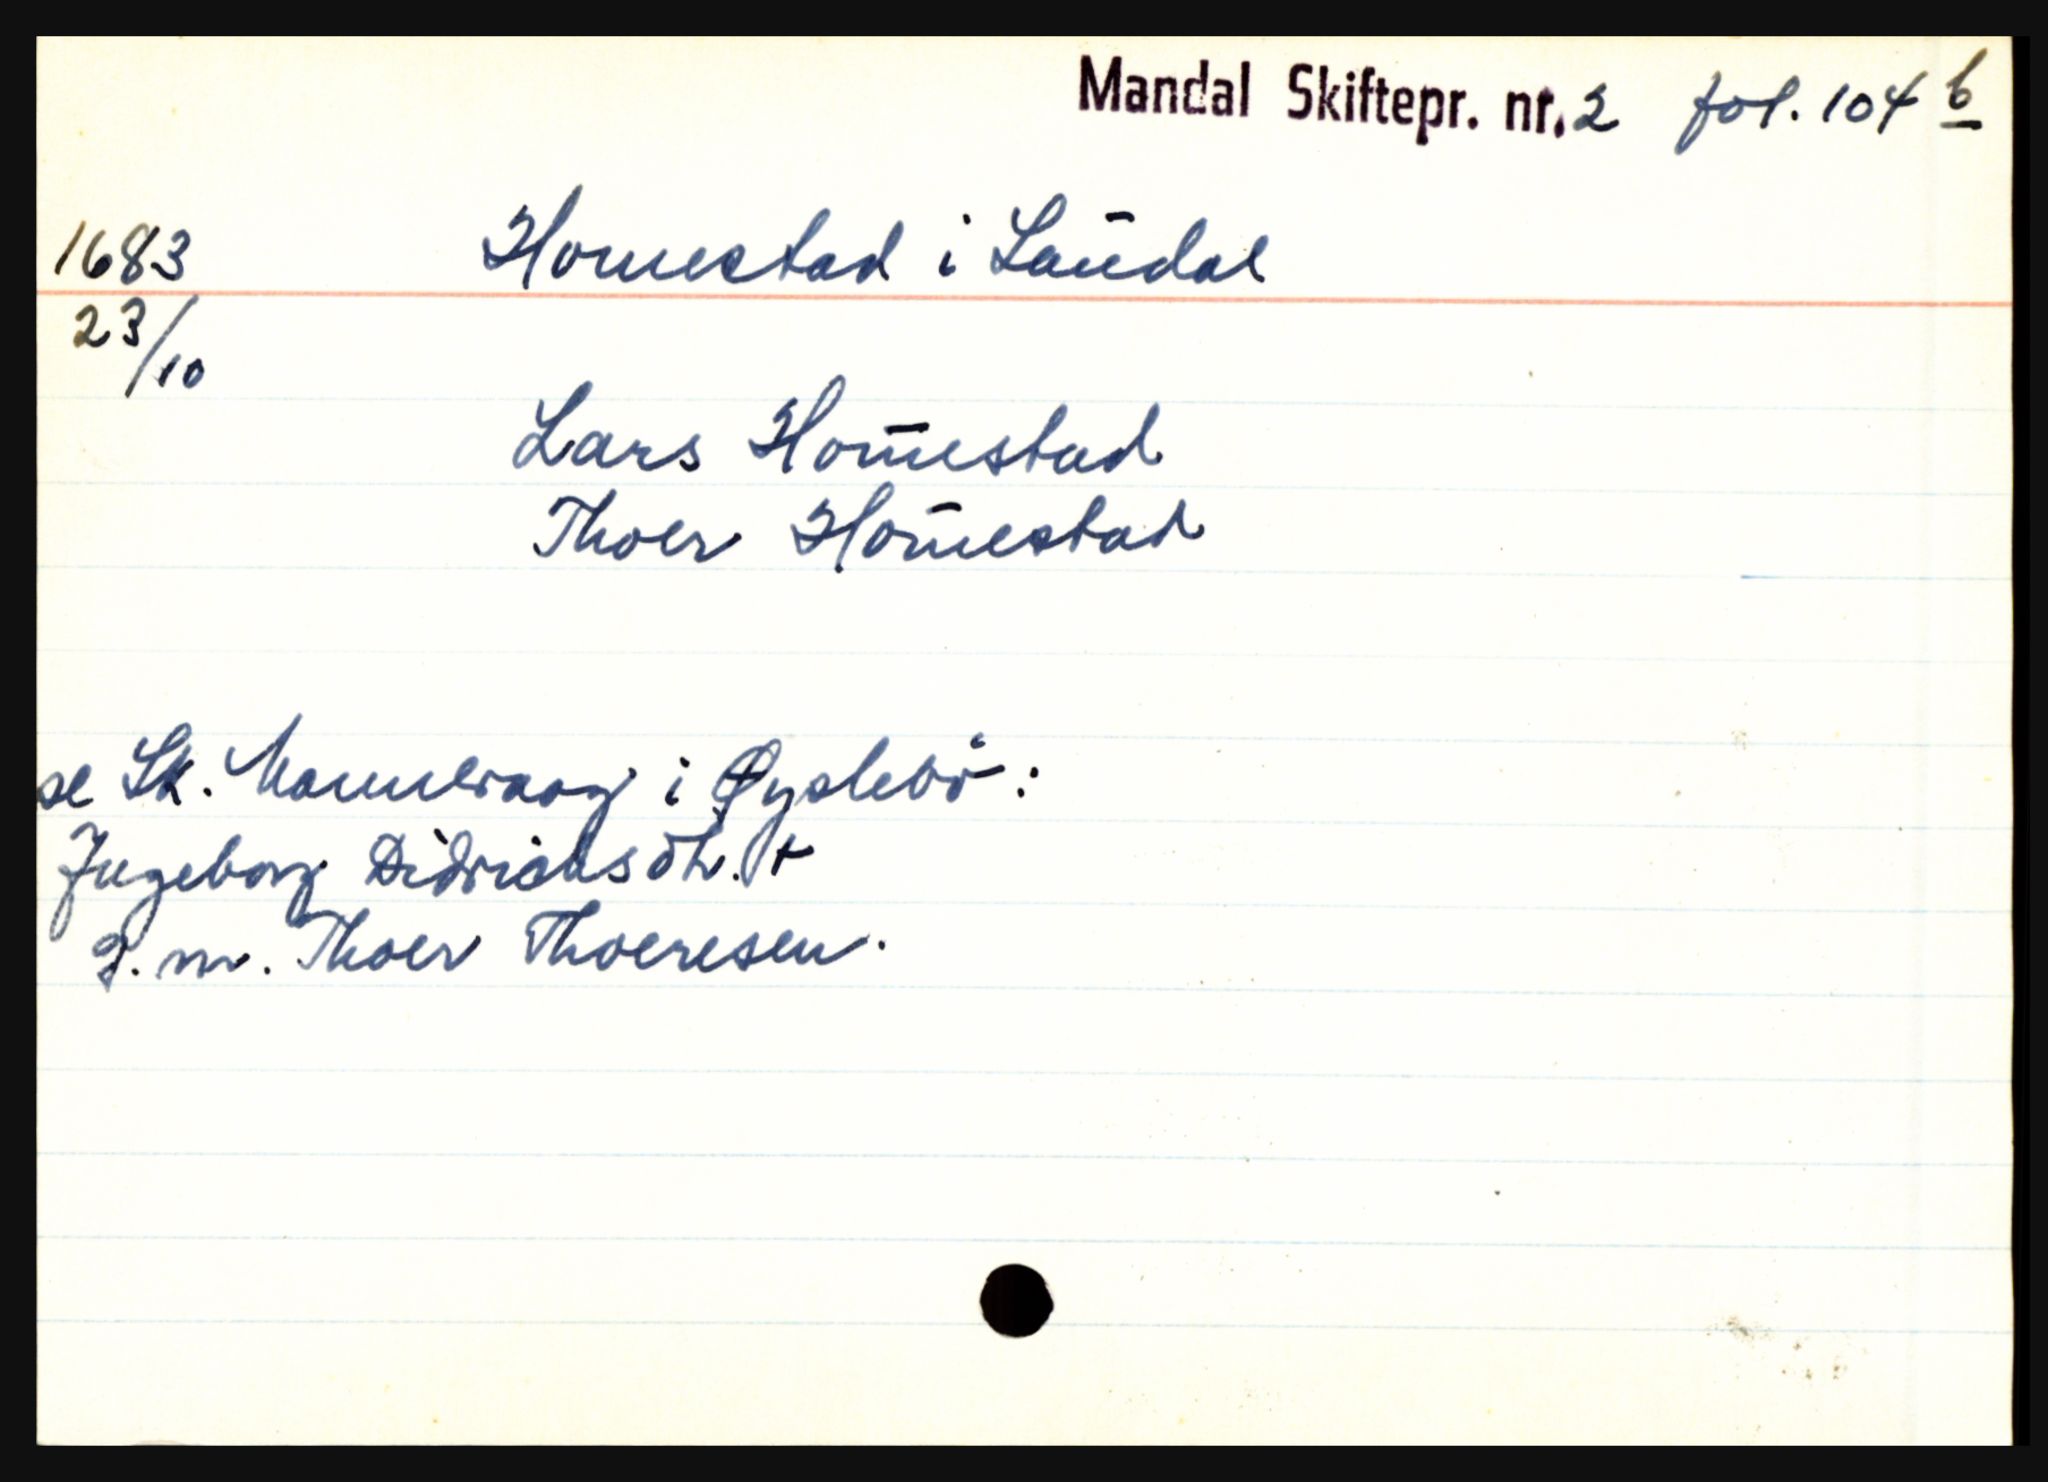 Mandal Skiftepr. nr. 2 fol. 104 b
1683 Homestad i Laudal
23/10
Lars Hom̅estad
Thoer Hom̅estad
se Sk. Manneraag i Øyslebø:
Ingeborg Didrichsdtr. +
g. m. Thoer Thoeresen.